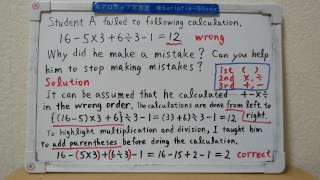 Student A failed to following calculation.
16-5×3+6÷3-1=12 wrong
Why did he make a mistake? Can you help
him to stop making mistakes?
1st ( )
2nd ×,÷
3rd +,-
Solution
It can be assumed that he calculated +-×÷
in the wrong order. The calculations are done from left to
right.
{(16-5)×3+6}÷3-1=(33+6)÷3-1=12
To highlight multiplication and division, I taught him
to add parentheses before doing the calculation.
16-(5×3)+(6÷3)-1=16-15+2-1=2 correct